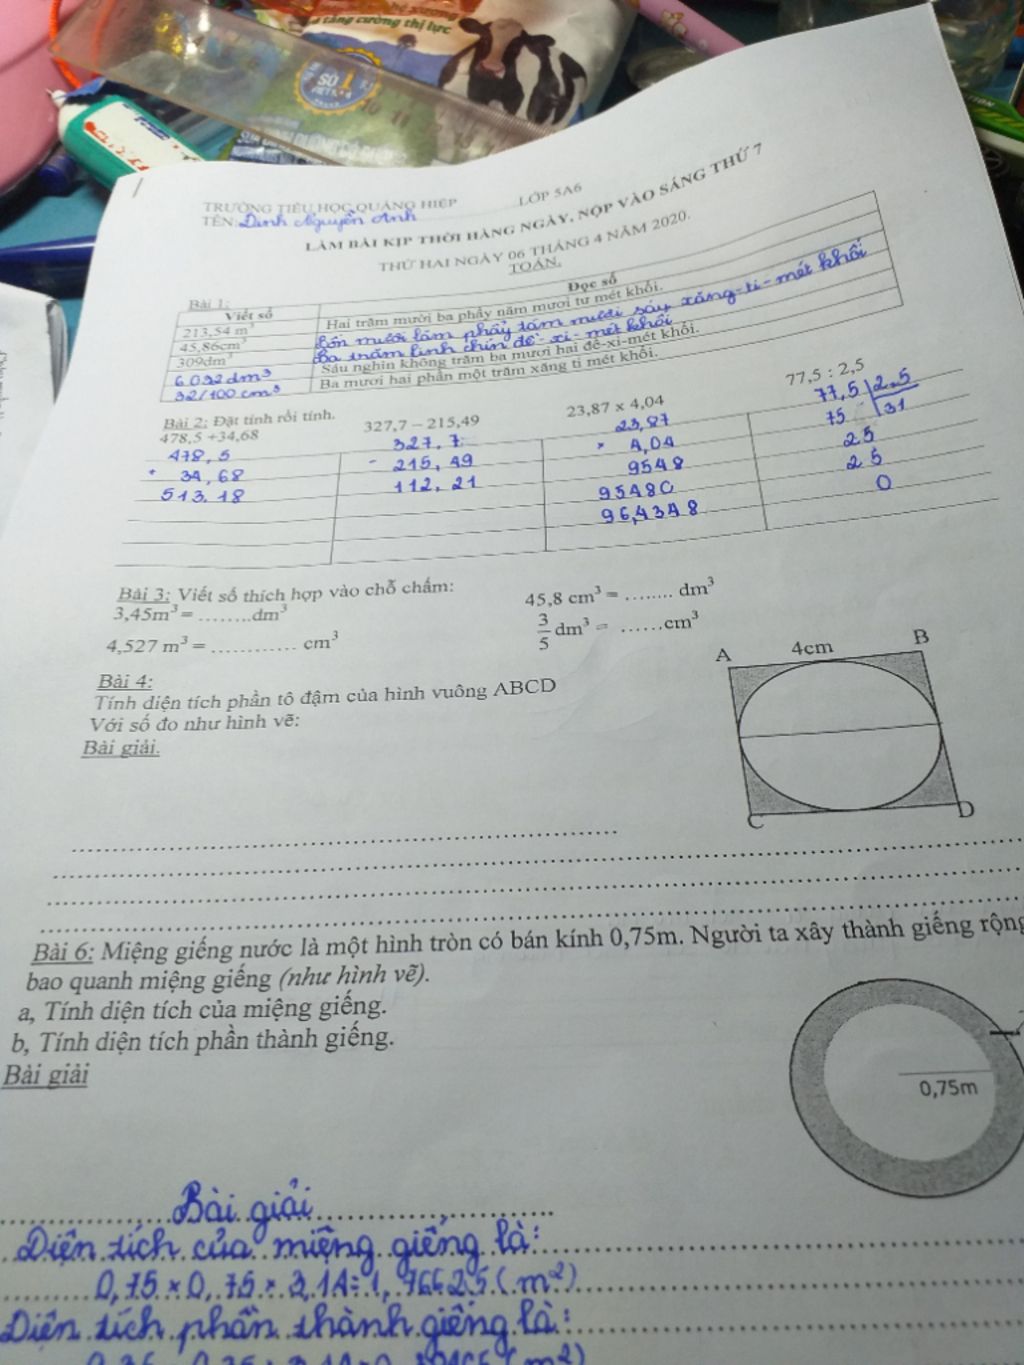 tăng cường thị lực
SỐ 1
TRƯỜNG TIỂU HỌC QUẢNG HIỆP LỚP 5A6
TÊN: Đinh Nguyễn Anh
LÀM BÀI KỊP THỜI HÀNG NGÀY, NỘP VÀO SÁNG THỨ 7
THỨ HAI NGÀY 06 THÁNG 4 NĂM 2020.
TOÁN.
Bài 1:
Viết số Đọc số
213,54 m³ Hai trăm mười ba phẩy năm mươi tư mét khối.
45,86cm³ Bốn mươi lăm phẩy tám mươi sáu xăng-ti-mét khối
309dm³ Ba trăm linh chín đề-xi-mét khối
6.032dm³ Sáu nghìn không trăm ba mươi hai đề-xi-mét khối.
32/100 cm³ Ba mươi hai phần một trăm xăng ti mét khối.
Bài 2: Đặt tính rồi tính.
478,5 +34,68 327,7 – 215,49 23,87 x 4,04 77,5 : 2,5
478,5 327,7 23,87 77,5 2,5
+ 34,68 - 215,49 × 4,04 75 31
513,18 112,21 9548 25
95480 25
96,4348 0
Bài 3: Viết số thích hợp vào chỗ chấm:
3,45m³ = ........dm³ 45,8 cm³ = ........ dm³
4,527 m³ = ............ cm³ 3/5 dm³ = ......cm³
Bài 4:
Tính diện tích phần tô đậm của hình vuông ABCD
Với số đo như hình vẽ:
Bài giải.
A 4cm B
C D
Bài 6: Miệng giếng nước là một hình tròn có bán kính 0,75m. Người ta xây thành giếng rộng
bao quanh miệng giếng (như hình vẽ).
a, Tính diện tích của miệng giếng.
b, Tính diện tích phần thành giếng.
Bài giải
0,75m
Bài giải
Diện tích của miệng giếng là:
0,75 × 0,75 × 3,14 = 1,76625 (m²)
Diện tích phần thành giếng là: